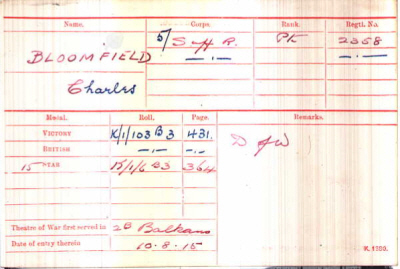 Name. Corps. Rank. Regtl. No.
BLOOMFIELD 5/Suff R. Pte 2358
Charles —"— —"—
Medal. Roll. Page. Remarks.
VICTORY K/1/103 B3 431.
BRITISH —"— —"—
15 STAR K/1/6 B3 364
D of W
Theatre of War first served in 2B Balkans
Date of entry therein 10-8-15
K. 1380.